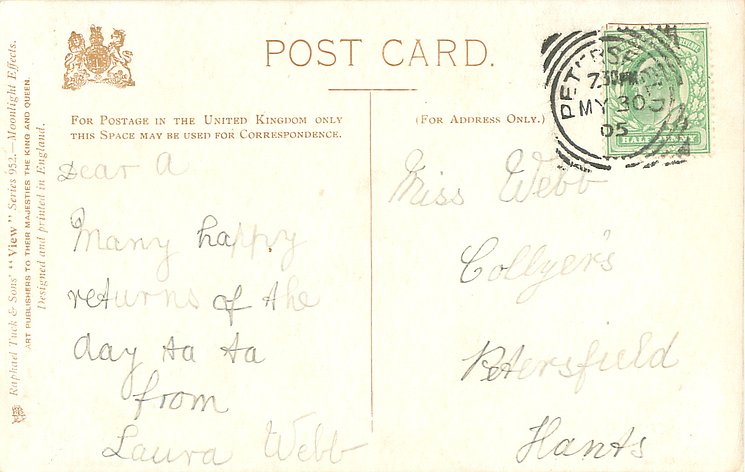 POST CARD.
FOR POSTAGE IN THE UNITED KINGDOM ONLY
THIS SPACE MAY BE USED FOR CORRESPONDENCE.
(FOR ADDRESS ONLY.)
7.30PM
MY 30
05
HALFPENNY
Dear A
Many happy
returns of the
day ta ta
from
Laura Webb
Miss Webb
Collyer's
Petersfield
Hants
Raphael Tuck & Sons' "View" Series 952.—Moonlight Effects.
ART PUBLISHERS TO THEIR MAJESTIES THE KING AND QUEEN.
Designed and printed in England.